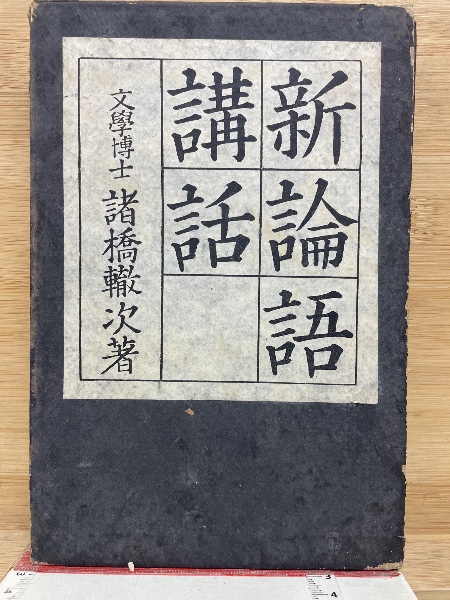 新論語
講話
文學博士 諸橋轍次著
3
4